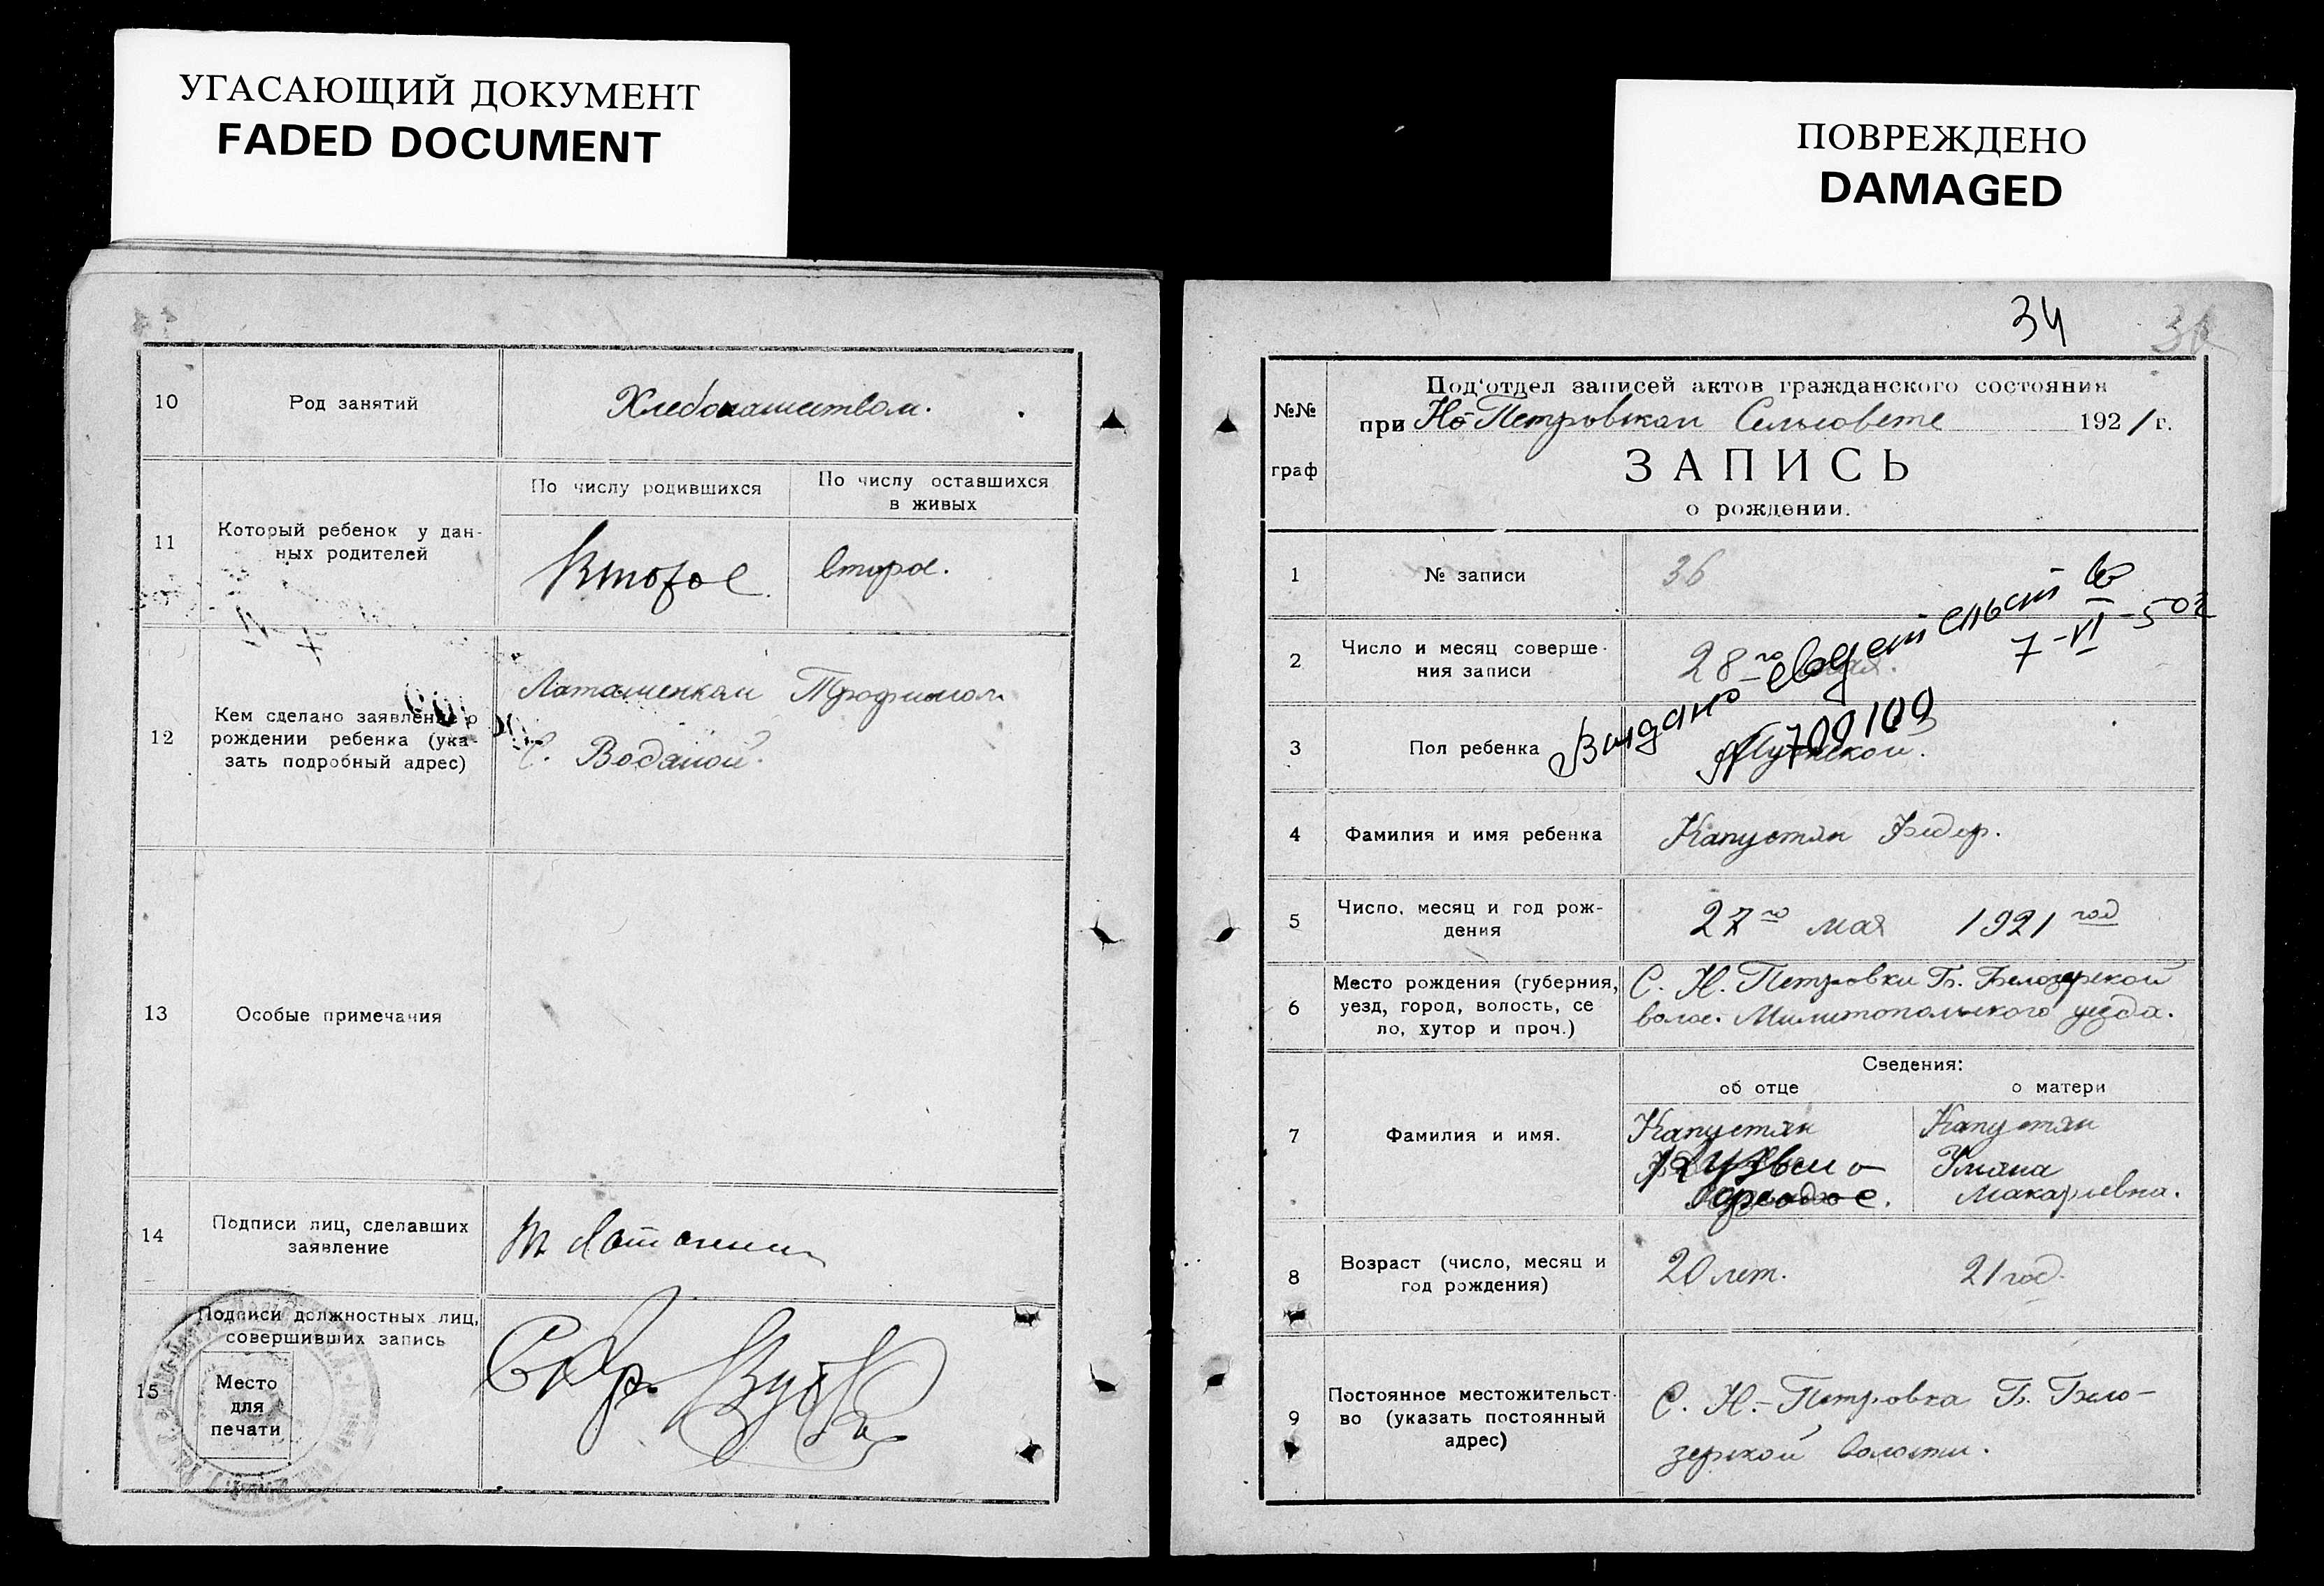 УГАСАЮЩИЙ ДОКУМЕНТ
FADED DOCUMENT
ПОВРЕЖДЕНО
DAMAGED
10
Род занятий
Хлебопашеством.
11
Который ребенок у дан-
ных родителей
По числу родившихся
Второе
По числу оставшихся
в живых
второе.
12
Кем сделано заявление о
рождении ребенка (ука-
зать подробный адрес)
Латашенком Трофимом
С. Водяной.
13
Особые примечания
14
Подписи лиц, сделавших
заявление
15
Подписи должностных лиц,
совершивших запись
Место
для
печати
34
№№
граф
Под'отдел записей актов гражданского состояния
при Но-Петровском Сельсовете 1921 г.
ЗАПИСЬ
о рождении.
1
№ записи
36
2
Число и месяц соверше-
ния записи
28го мая.
Выдано свидетельст во
7-VI-50г
№ 700100
3
Пол ребенка
Мужской.
4
Фамилия и имя ребенка
Капустян Федор.
5
Число, месяц и год рож-
дения
27го мая 1921 год
6
Место рождения (губерния,
уезд, город, волость, се
ло, хутор и проч.)
С. Н. Петровки Б. Белозерской
волос. Мелитопольского уезда.
Сведения:
об отце
о матери
7
Фамилия и имя.
Капустян
Кузьма
Капустян
Ульяна
Макарьевна.
8
Возраст (число, месяц и
год рождения)
20 лет.
21 год.
9
Постоянное местожительст-
во (указать постоянный
адрес)
С. Н.-Петровка Б. Бело-
зерской волости.